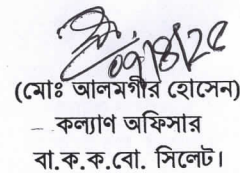 ০৭/৪/২৫
(মোঃ আলমগীর হোসেন)
কল্যাণ অফিসার
বা.ক.ক.বো. সিলেট।